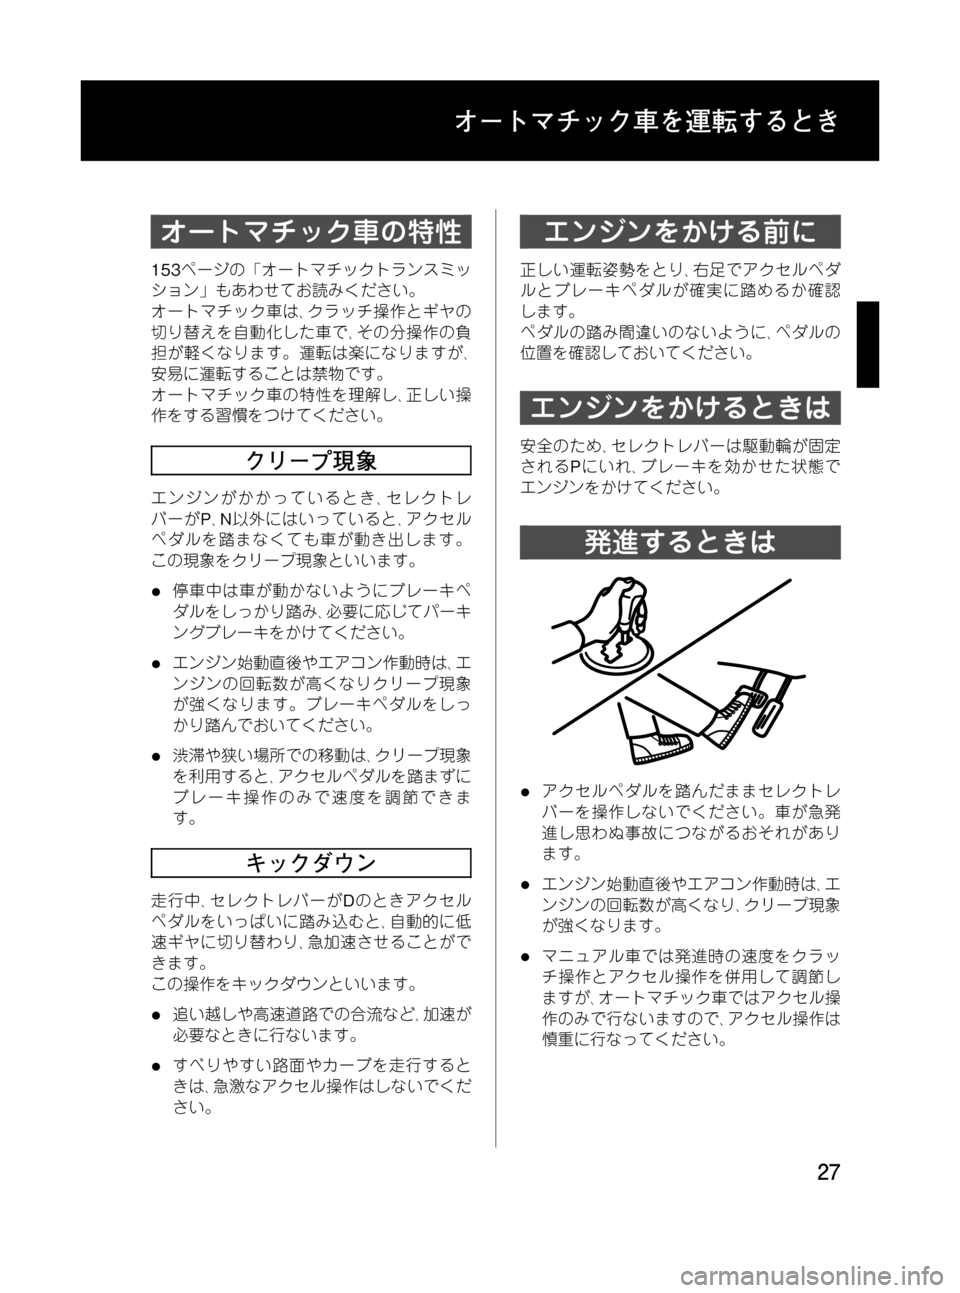 オートマチック車を運転するとき
オートマチック車の特性
153ページの「オートマチックトランスミッ
ション」もあわせてお読みください。
オートマチック車は、クラッチ操作とギヤの
切り替えを自動化した車で、その分操作の負
担が軽くなります。運転は楽になりますが、
安易に運転することは禁物です。
オートマチック車の特性を理解し、正しい操
作をする習慣をつけてください。
クリープ現象
エンジンがかかっているとき、セレクトレ
バーがP、N以外にはいっていると、アクセル
ペダルを踏まなくても車が動き出します。
この現象をクリープ現象といいます。
● 停車中は車が動かないようにブレーキペ
ダルをしっかり踏み、必要に応じてパーキ
ングブレーキをかけてください。
● エンジン始動直後やエアコン作動時は、エ
ンジンの回転数が高くなりクリープ現象
が強くなります。ブレーキペダルをしっ
かり踏んでおいてください。
● 渋滞や狭い場所での移動は、クリープ現象
を利用すると、アクセルペダルを踏まずに
ブレーキ操作のみで速度を調節できま
す。
キックダウン
走行中、セレクトレバーがDのときアクセル
ペダルをいっぱいに踏み込むと、自動的に低
速ギヤに切り替わり、急加速させることがで
きます。
この操作をキックダウンといいます。
● 追い越しや高速道路での合流など、加速が
必要なときに行ないます。
● すべりやすい路面やカーブを走行すると
きは、急激なアクセル操作はしないでくだ
さい。
エンジンをかける前に
正しい運転姿勢をとり、右足でアクセルペダ
ルとブレーキペダルが確実に踏めるか確認
します。
ペダルの踏み間違いのないように、ペダルの
位置を確認しておいてください。
エンジンをかけるときは
安全のため、セレクトレバーは駆動輪が固定
されるPにいれ、ブレーキを効かせた状態で
エンジンをかけてください。
発進するときは
● アクセルペダルを踏んだままセレクトレ
バーを操作しないでください。車が急発
進し思わぬ事故につながるおそれがあり
ます。
● エンジン始動直後やエアコン作動時は、エ
ンジンの回転数が高くなり、クリープ現象
が強くなります。
● マニュアル車では発進時の速度をクラッ
チ操作とアクセル操作を併用して調節し
ますが、オートマチック車ではアクセル操
作のみで行ないますので、アクセル操作は
慎重に行なってください。
27
carmanualsonline.info